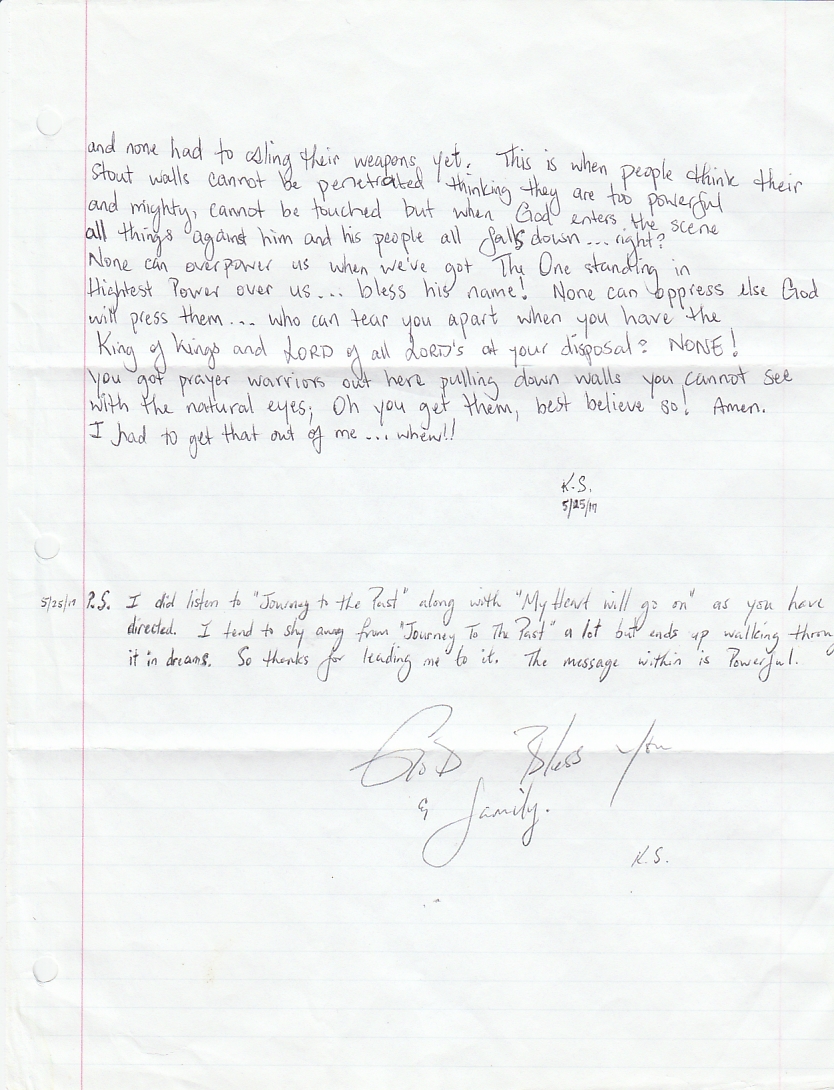 and none had to sling their weapons yet. This is when people think their
stout walls cannot be penetrated thinking they are too powerful
and mighty, cannot be touched but when God enters the scene
all things against him and his people all falls down... right?
None can overpower us when we've got The One standing in
Hightest Power over us... bless his name! None can oppress else God
will press them... who can tear you apart when you have the
King of Kings and LORD of all LORD's at your disposal? NONE!
You got prayer warriors out here pulling down walls you cannot see
with the natural eyes; Oh you get them, best believe so! Amen.
I had to get that out of me... whew!!
K.S.
5/25/17
5/25/17 P.S. I did listen to "Journey to the Past" along with "My Heart will go on" as you have
directed. I tend to shy away from "Journey To The Past" a lot but ends up walking throug
it in dreams. So thanks for leading me to it. The message within is Powerful.
GOD Bless You
& family.
K.S.